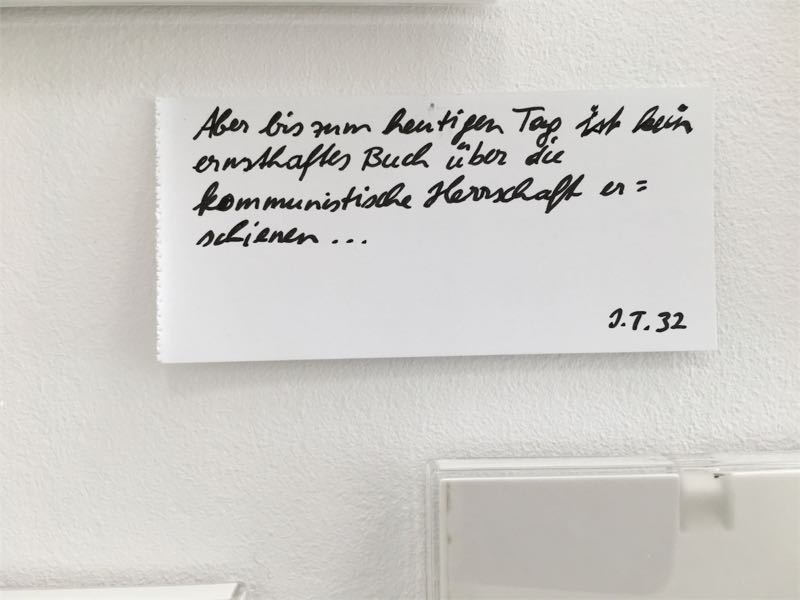 Aber bis zum heutigen Tag ist kein
ernsthaftes Buch über die
kommunistische Herrschaft er=
schienen ...
J.T. 32